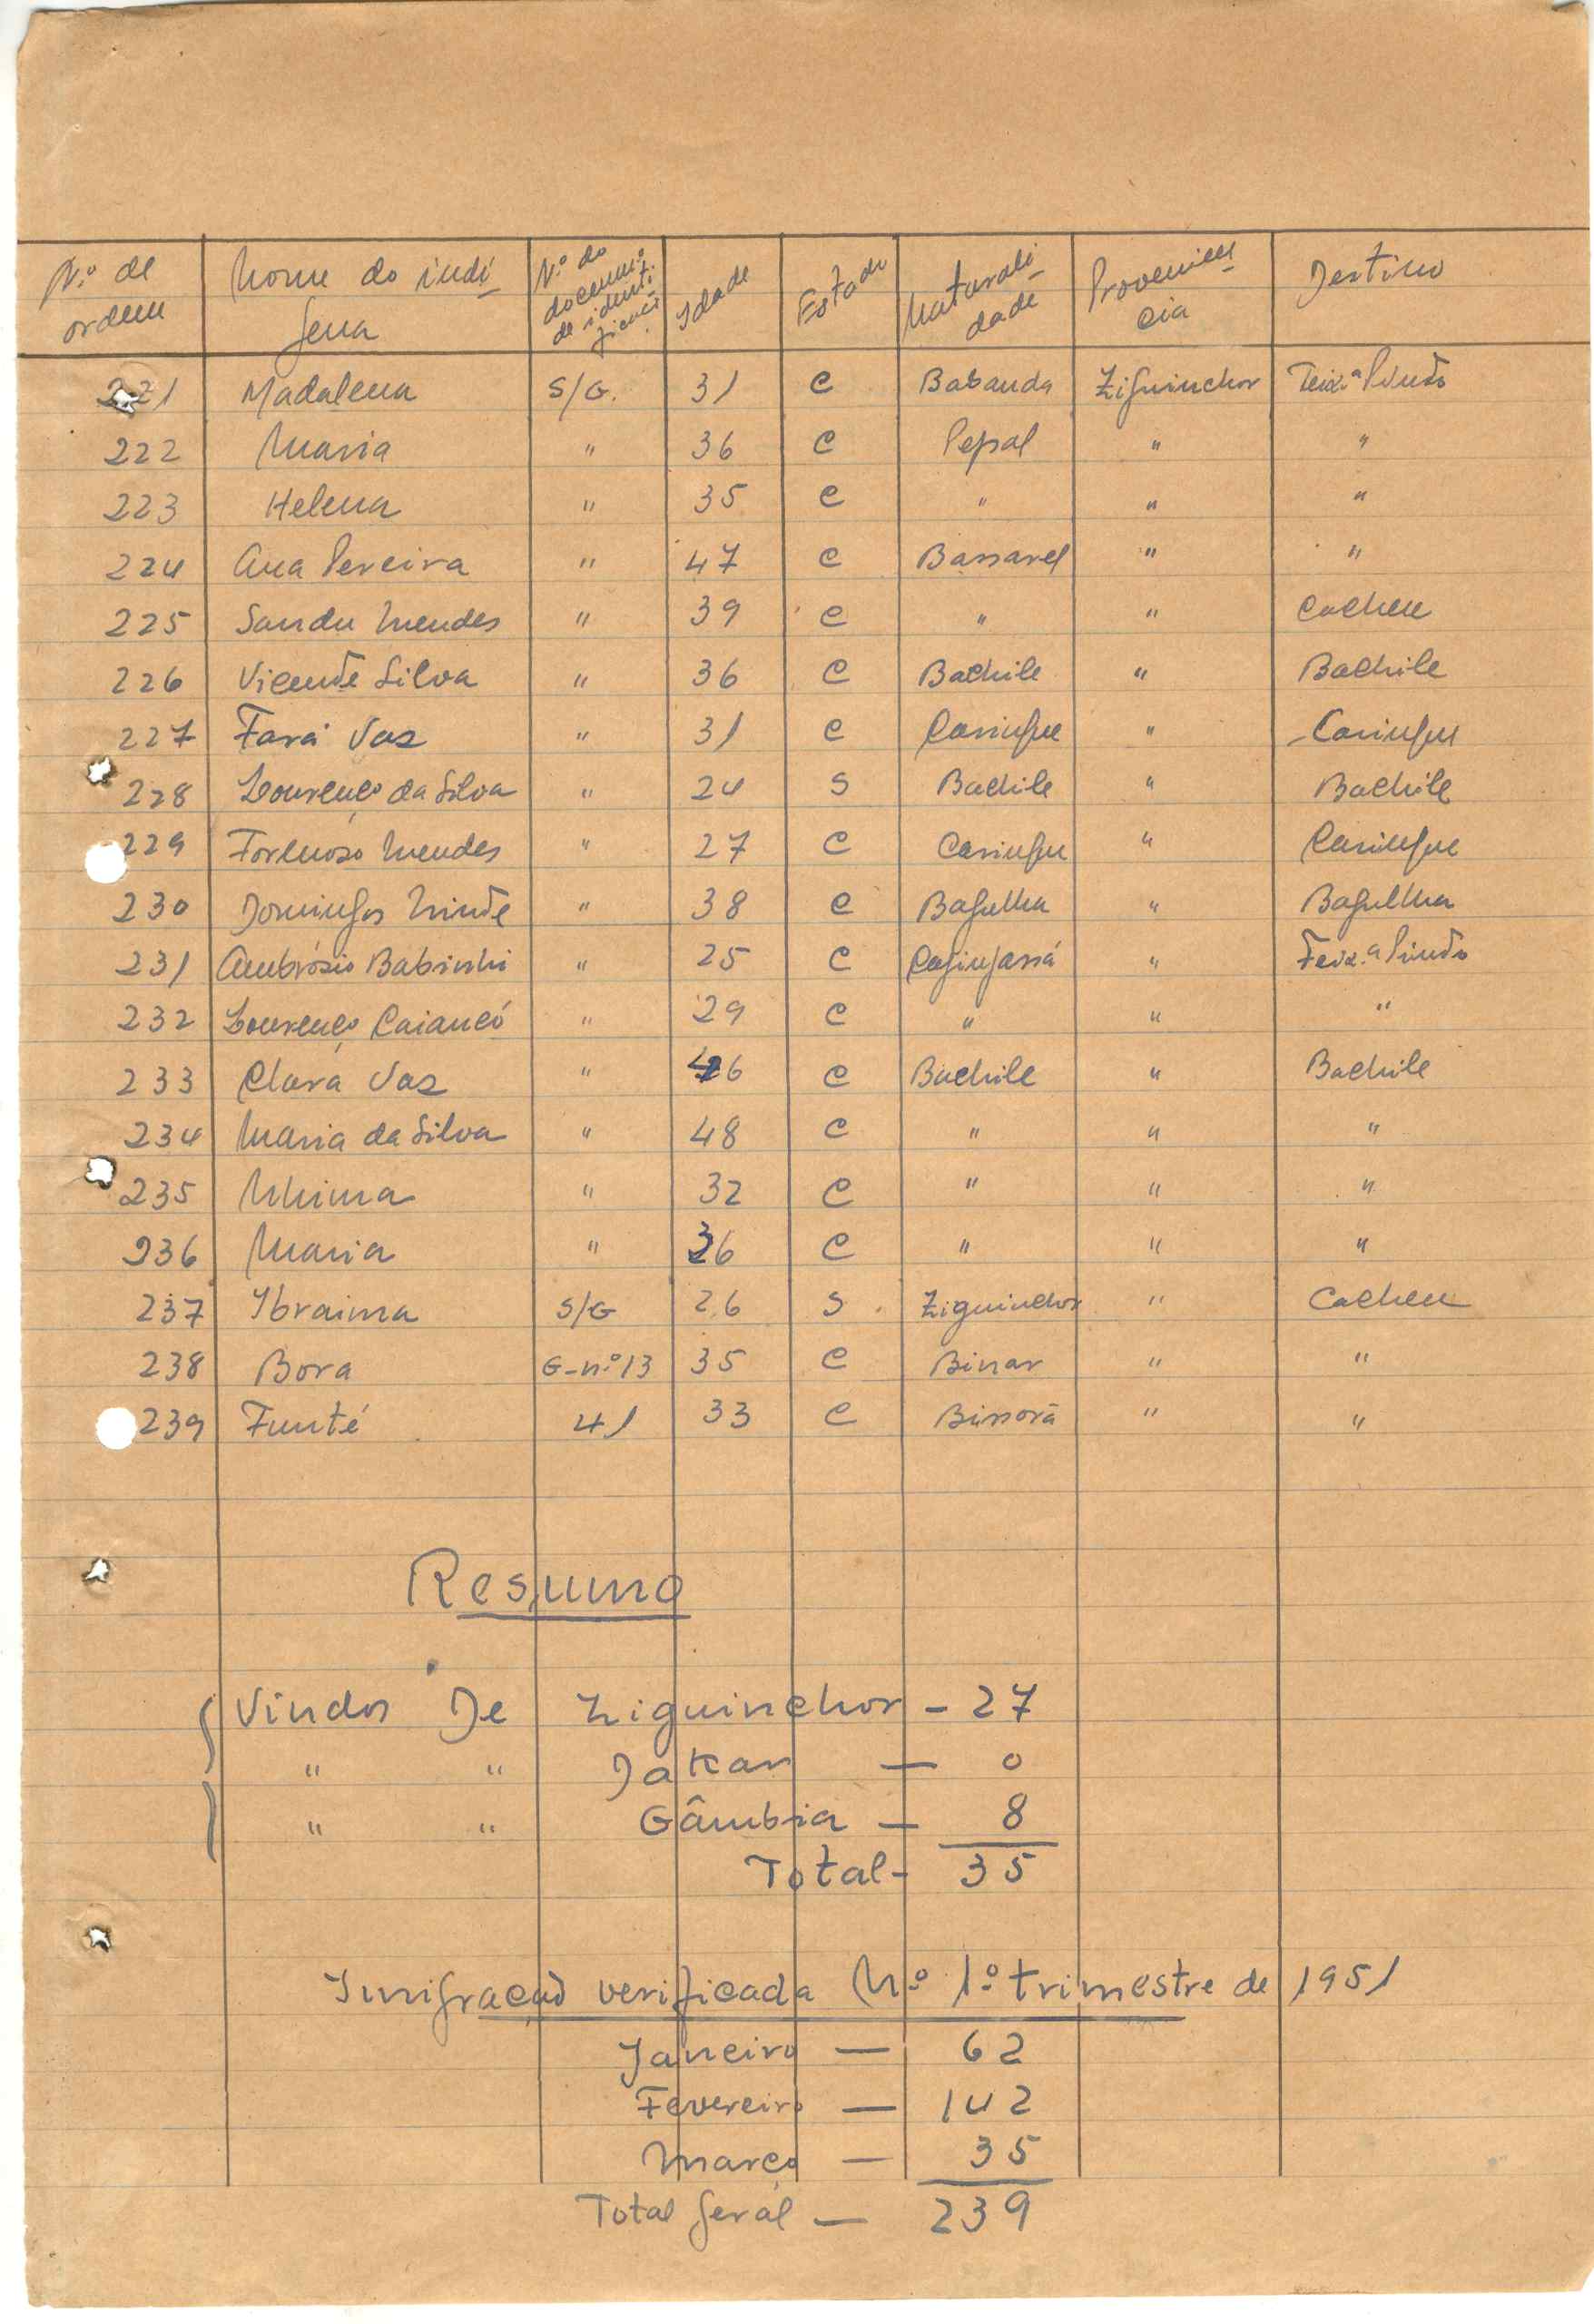 N.º de ordem | Nome do indígena | N.º do docum.º de identificaç. | Idade | Estado | Naturalidade | Proveniencia | Destino
221 Madalena S/G. 31 C Babanda Ziguinchor Teix.ª Pinto
222 Maria " 36 C Pepal " "
223 Helena " 35 C " " "
224 Ana Pereira " 47 C Bassarel " "
225 Sandu Mendes " 39 C " " Cacheu
226 Vicente Silva " 36 C Bachile " Bachile
227 Fará Vaz " 31 C Caringue " Caringue
228 Lourenço da Silva " 24 S Bachile " Bachile
229 Formoso Mendes " 27 C Caringue " Caringue
230 Domingos " 38 C Bagulha " Bagulha
231 Ambrósio Babinhi " 25 C " Teix.ª Pinto
232 Lourenço Caiancó " 29 C " " "
233 Clara Vaz " 46 C Bachile " Bachile
234 Maria da Silva " 48 C " " "
235 Nhima " 32 C " " "
236 Maria " 36 C " " "
237 Ibraima S/G 26 S Ziguinchor " Cacheu
238 Bora G-nº13 35 C Binar " "
239 Funté 41 33 C Bissorã " "
Resumo
Vindos De Ziguinchor - 27
" " Dakar — 0
" " Gâmbia — 8
Total - 35
Imigração verificada Nº 1º trimestre de 1951
Janeiro — 62
Fevereiro — 142
Março — 35
Total geral — 239